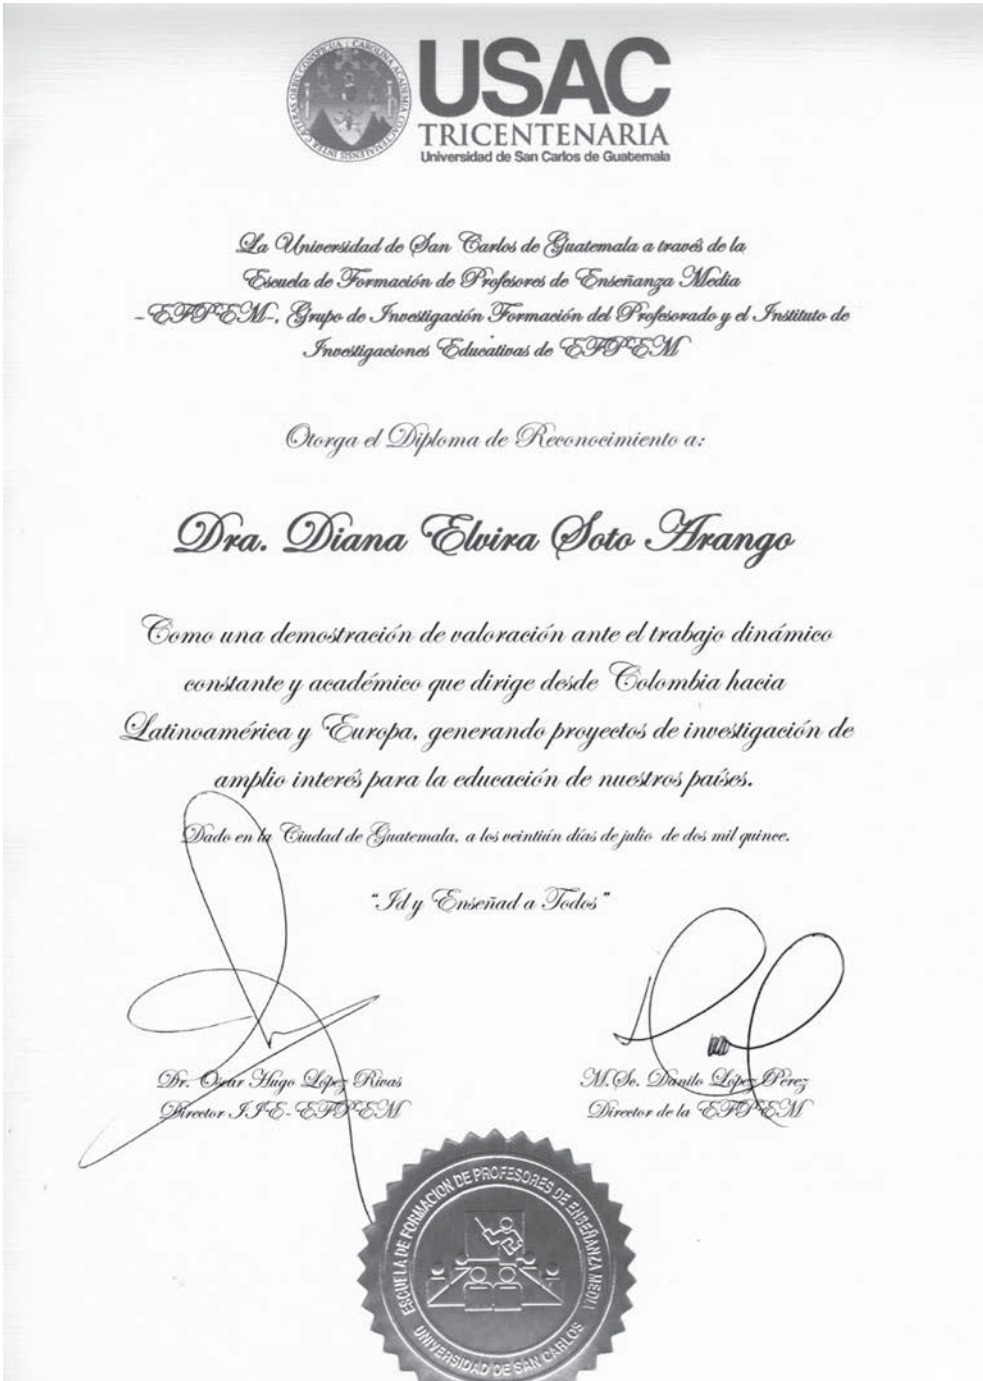 INTER CÆTERAS ORBIS CONSPICUA CAROLINA ACADEMIA COACTEMALENSIS
USAC
TRICENTENARIA
Universidad de San Carlos de Guatemala
La Universidad de San Carlos de Guatemala a través de la
Escuela de Formación de Profesores de Enseñanza Media
-EFPEM-, Grupo de Investigación Formación del Profesorado y el Instituto de
Investigaciones Educativas de EFPEM
Otorga el Diploma de Reconocimiento a:
Dra. Diana Elvira Soto Arango
Como una demostración de valoración ante el trabajo dinámico
constante y académico que dirige desde Colombia hacia
Latinoamérica y Europa, generando proyectos de investigación de
amplio interés para la educación de nuestros países.
Dado en la Ciudad de Guatemala, a los veintiún días de julio de dos mil quince.
"Id y Enseñad a Todos"
Dr. Oscar Hugo López Rivas
Director IIE-EFPEM
M.Sc. Danilo López Pérez
Director de la EFPEM
ESCUELA DE FORMACION DE PROFESORES DE ENSEÑANZA MEDIA
UNIVERSIDAD DE SAN CARLOS